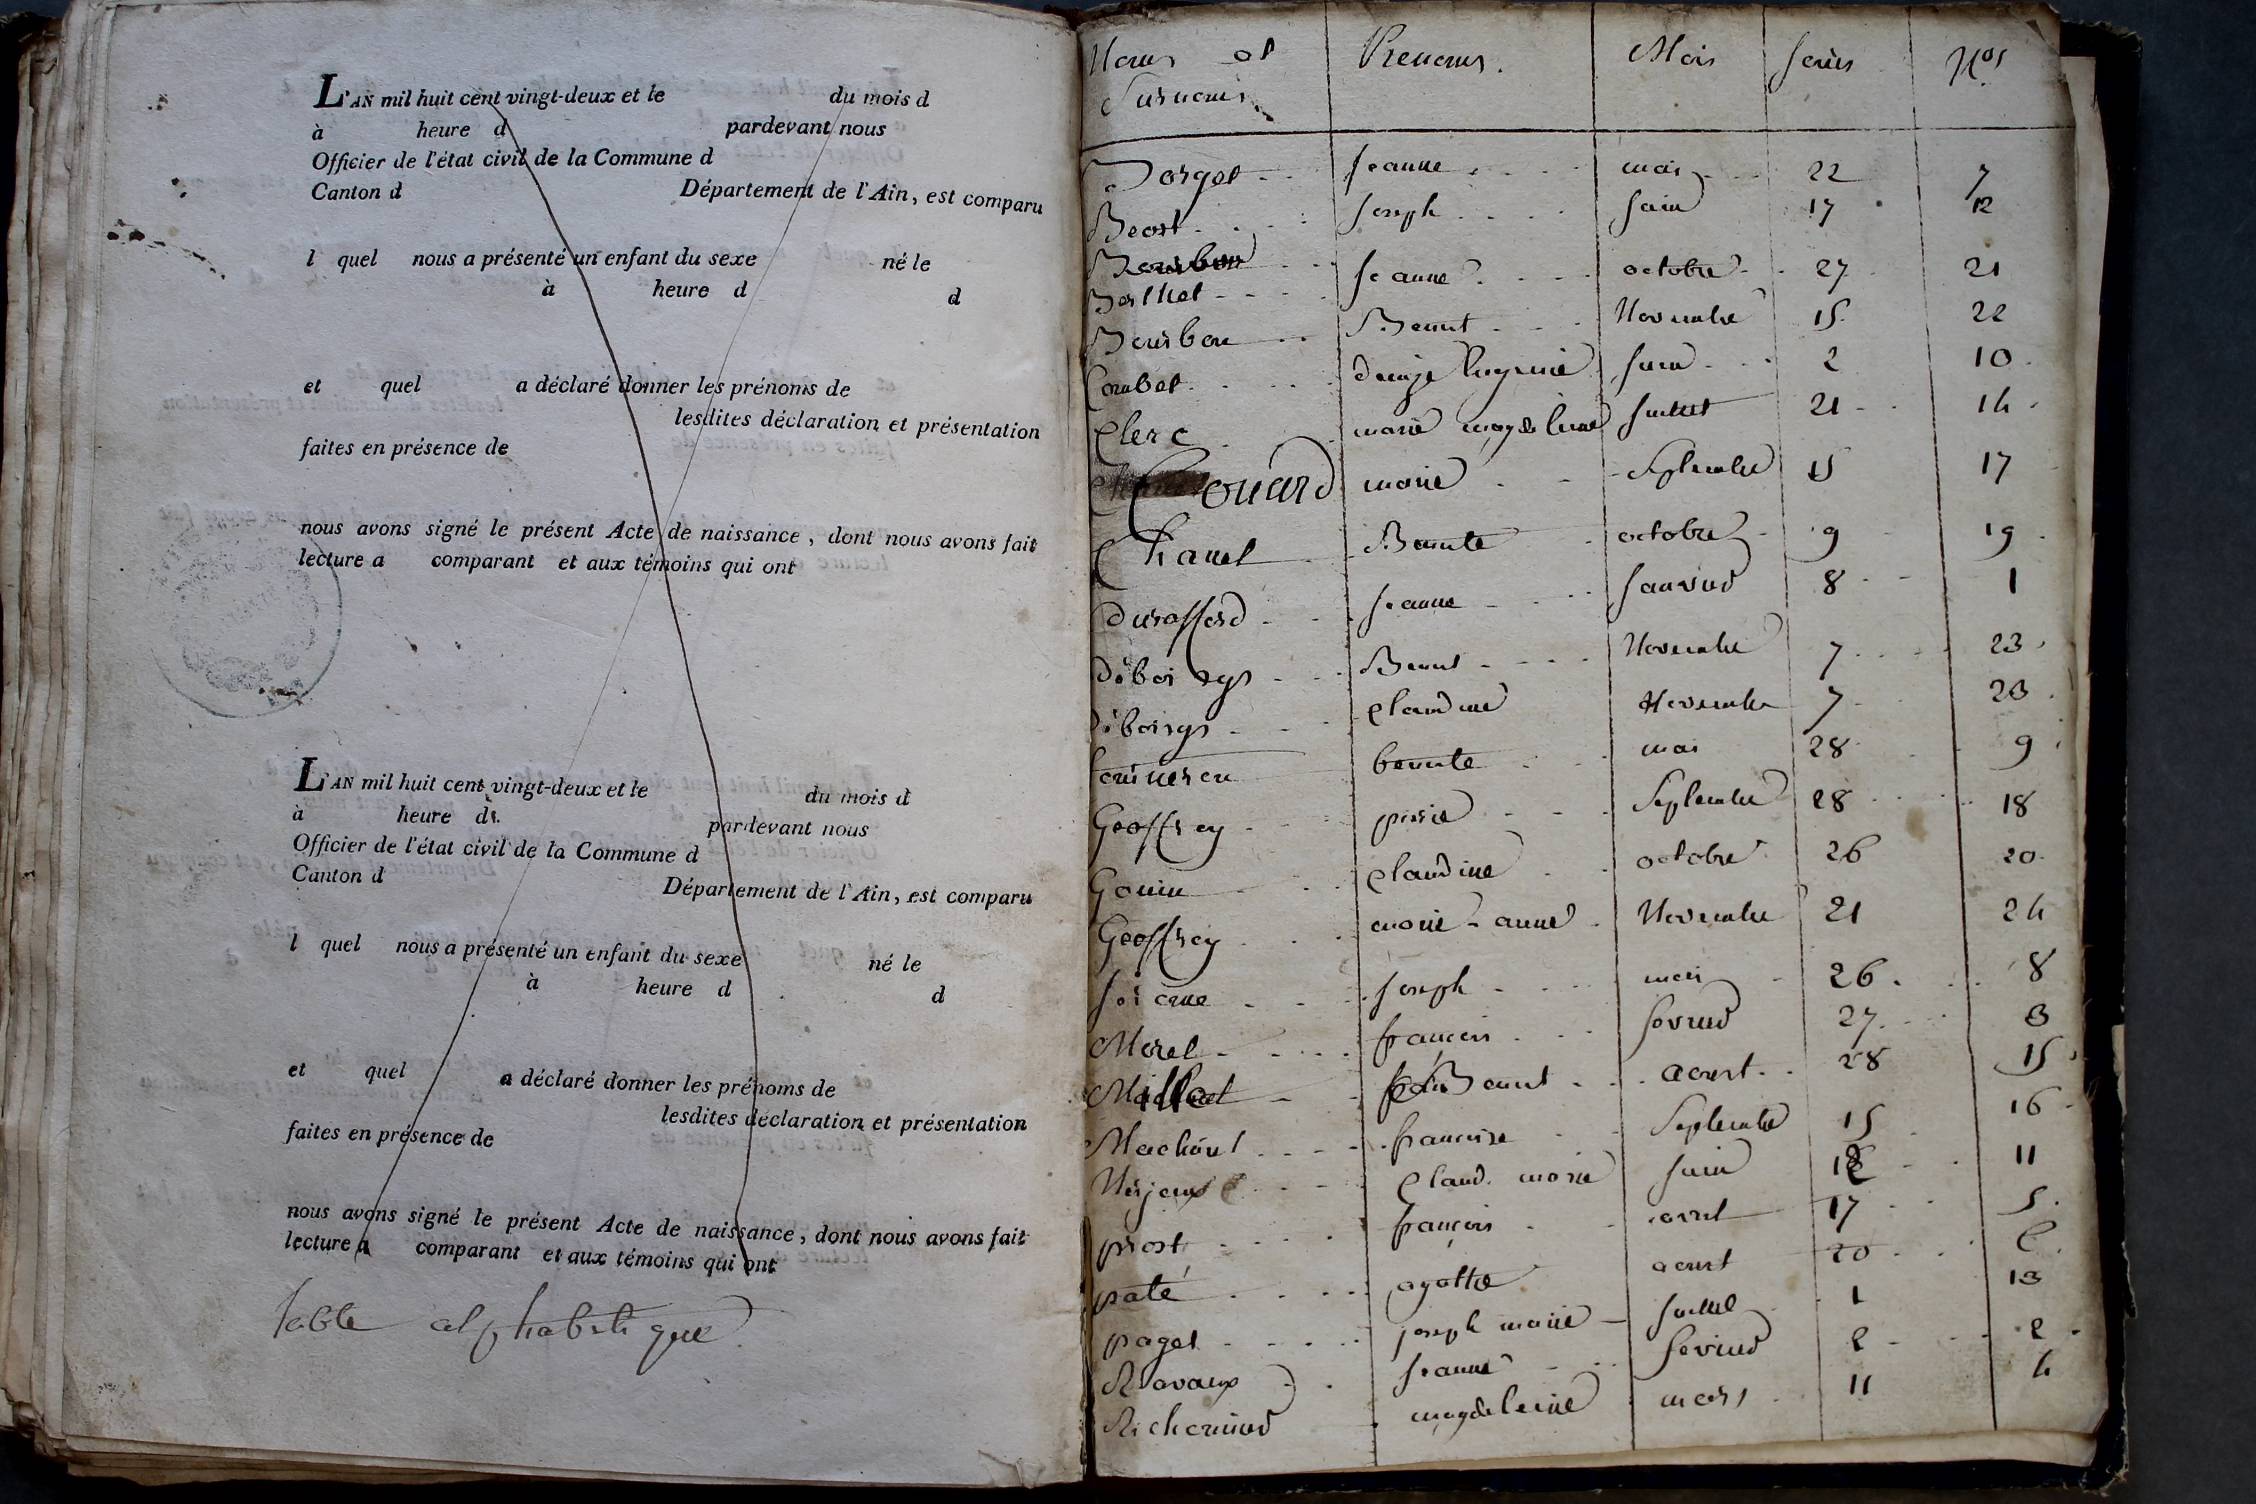 L'AN mil huit cent vingt-deux et le du mois d
à heure d pardevant nous
Officier de l'état civil de la Commune d
Canton d Département de l'Ain, est comparu
l quel nous a présenté un enfant du sexe né le
à heure d d
et quel a déclaré donner les prénoms de
lesdites déclaration et présentation
faites en présence de
nous avons signé le présent Acte de naissance, dont nous avons fait
lecture a comparant et aux témoins qui ont
L'AN mil huit cent vingt-deux et le du mois d
à heure d
pardevant nous
Officier de l'état civil de la Commune d
Canton d Département de l'Ain, est comparu
l quel nous a présenté un enfant du sexe né le
à heure d d
et quel a déclaré donner les prénoms de
lesdites déclaration et présentation
faites en présence de
nous avons signé le présent Acte de naissance, dont nous avons fait
lecture a comparant et aux témoins qui ont
table alphabetique
Noms et Surnoms Prenoms. Mois series Nos
Borget Jeanne mai 22 7
Beost Joseph Juin 17 12
Bourbon
Berthet Jeanne octobre 27 21
Bourbon Benoit Novembre 15 22
Combet Eugenie Juin 2 10
Clerc marie magdeleine Juillet 21 14
Couard marie Septembre 15 17
Chanel Benoite octobre 9 19
Durafford Jeanne Janvier 8 1
Novembre 7 23
Claudine Novembre 7 23
benoite mai 28 9
Geoffrey Septembre 28 18
Gouin Claudine octobre 26 20
Geoffrey marie-anne Novembre 21 24
Joseph mai 26 8
Morel françois fevrier 27 3
Millet Benoit aoust 28 15
Machout françoise Septembre 15 16
Claud. marie Juin 11
prost françois avril 17 5
paté agathe aoust 20
paget joseph marie Juillet 1 13
Ravaux Jeanne fevrier 2 2
Richerind magdeleine mars 11 4